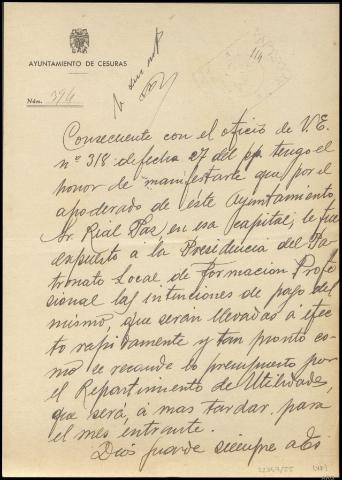 AYUNTAMIENTO DE CESURAS
Núm. 394
114
Consecuente con el oficio de V.E.
nº 318 de fecha 27 del pp. tengo el
honor de manifestarle que por el
apoderado de este Ayuntamiento
Sr. Rial Paz en esa capital, le fue
expuesto a la Presidencia del Pa-
tronato Local de Formacion Profe-
sional las intenciones de pago del
mismo, que serán llevadas a efec-
to rapidamente y tan pronto co-
mo se recaude lo presupuesto por
el Repartimiento de Utilidades,
que será, á mas tardar, para
el mes entrante.
Dios guarde siempre a Es